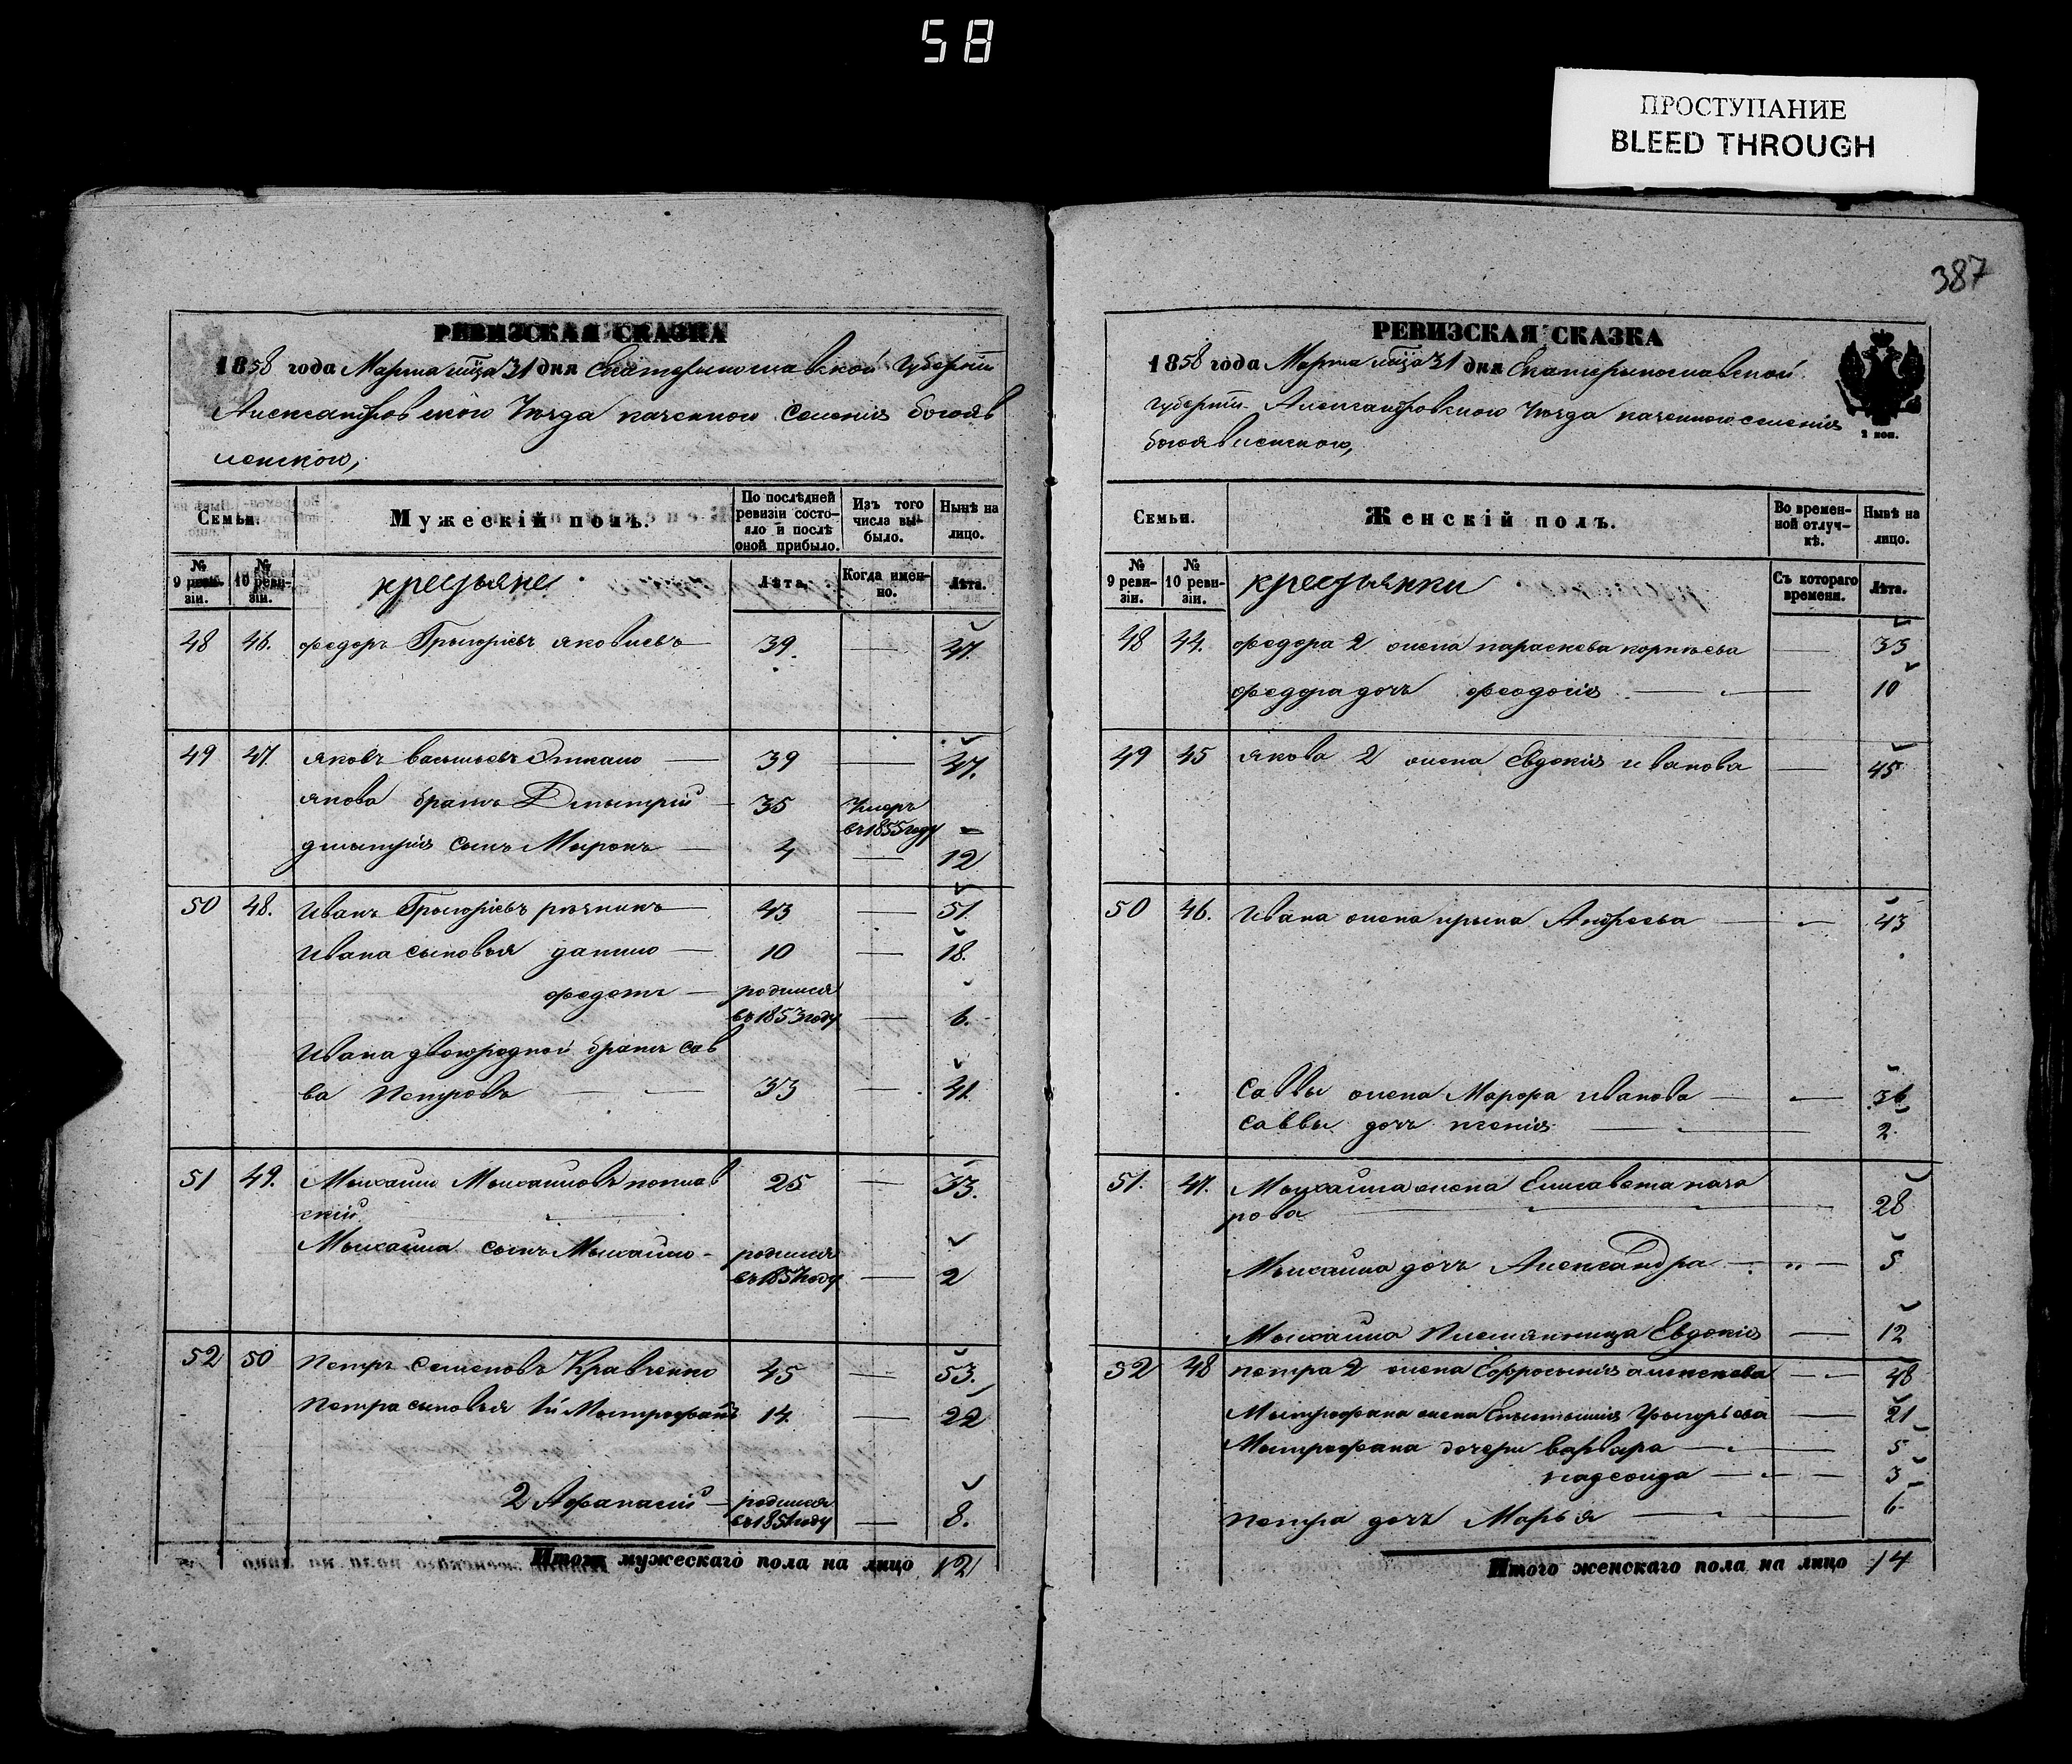 58
ПРОСТУПАНИЕ
BLEED THROUGH
387
РЕВИЗСКАЯ СКАЗКА
1858 года Марта мца 31 дня Екатеринославской Губернии
Александровского Уезда казенного селения Богояв
ленского,
Семьи.
Мужескій полъ.
По послѣдней ревизіи состояло и послѣ оной прибыло.
Изъ того числа выбыло.
Нынѣ на лицо.
№ 9 ревизіи.
№ 10 ревизіи.
крестьяне
Лѣта.
Когда именно.
Лѣта.
48 46. федоръ Григорьевъ яковлевъ 39 47.
49 47 яковъ васильевъ 39 47.
якова братъ Дмытрій 35 Умеръ въ 1855 году
дмытрія сынъ Миронъ 4 12
50 48. Иванъ Григорьевъ рѣзникъ 43 51.
Ивана сыновья данило 10 18.
федотъ родился въ 1853 году 6.
Ивана двоюродной братъ сав
ва Петровъ 33 41.
51 49. Мыхайло Мыхайловъ
скій 25 33.
Мыхайла сынъ Мыхайло родился въ 1857 году 2
52 50 Петръ семеновъ Кравченко 45 53.
Петра сыновья 1й Мытрофанъ 14 22
2 Афанасій родился въ 1851 году 8.
Итого мужескаго пола на лицо 12
РЕВИЗСКАЯ СКАЗКА
1858 года Марта мца 31 дня Екатеринославской
губерніи Александровского Уезда казенного селенія
богоявленского,
2 коп.
Семьи.
Женскій полъ.
Во временной отлучкѣ.
Нынѣ на лицо.
№ 9 ревизіи.
№ 10 ревизіи.
крестьянки
Съ котораго времени.
Лѣта.
48 44. федора 2 жена параскева корнѣева 35
федора дочь феодосія 10
49 45 якова 2 жена Евдокія иванова 45
50 46. Ивана жена ирына Андреева 43
Саввы жена Марфа иванова 36
саввы дочь ксенія 2.
51. 47. Мыхайла жена Елисавета наза
рова 28
Мыхайла дочь Александра 5
Мыхайла племянница Евдокія 12
52 48 петра 2 жена Ефросынія алексеева 48
Мытрофана жена Григорьева 21
Мытрофана дочери варвара 5
3
петра дочь Марья 6
Итого женскаго пола на лицо 14